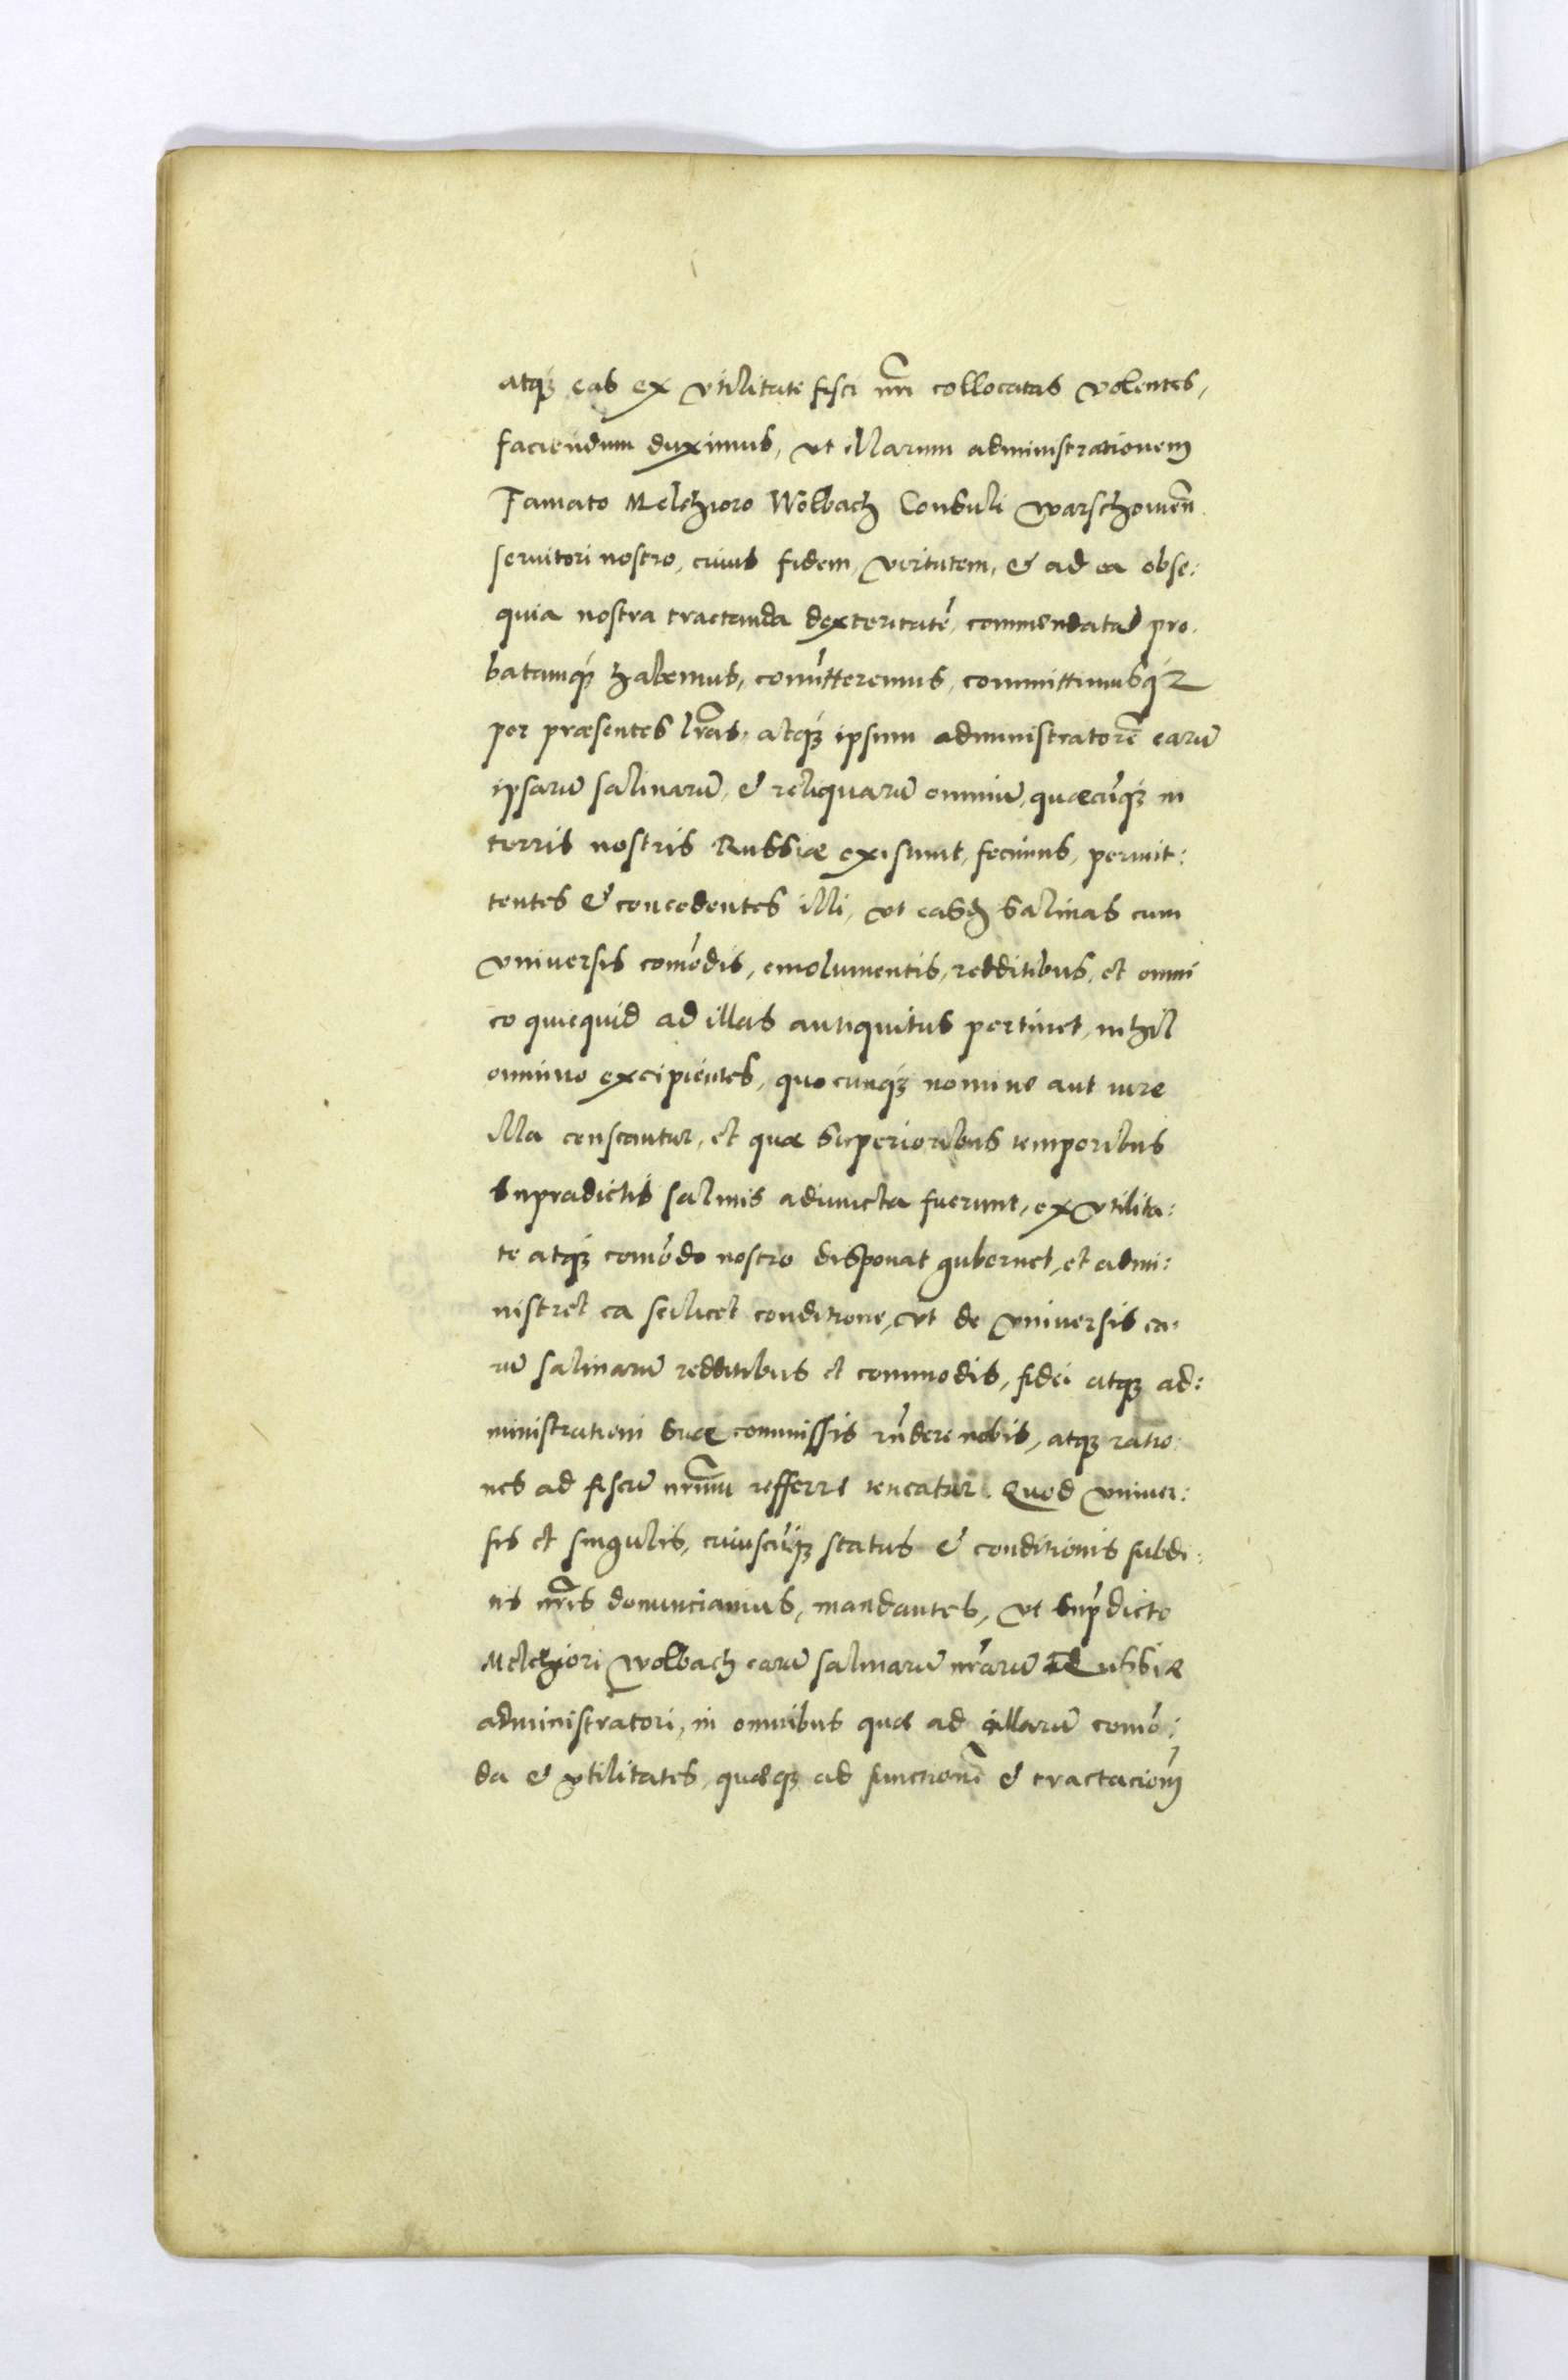 atq₃ eas ex vtilitate fisci nr̃i collocatas volentes,
faciendum duximus, vt illarum administrationem
Famato Melchioro Wolbach Consuli Warschouien̄
seruitori nostro, cuius fidem, virtutem, & ad ea obse:
quia nostra tractanda dexteritatē, commendatā pro:
batamq₃ habemus, com̄itteremus, committimusq₃
per præsentes lr̃as, atq₃ ipsum administratorē earū
ipsarū salinarū, & reliquarū omniū, quæcūq₃ in
terris nostris Russiæ existunt, fecimus, permit:
tentes & concedentes illi, vt easd̃ salinas cum
vniuersis com̄odis, emolumentis, redditibus, et omni
eo quicquid ad illas antiquitus pertinet, nihil
omnino excipientes, quocunq₃ nomine aut iure
illa censeantur, et quæ superioribus temporibus
supradictis salinis adiuncta fuerunt, ex vtilita:
te atq₃ com̄odo nostro disponat gubernet, et admi:
nistret ea scilicet conditione, vt de vniuersis ea:
rū salinarū redditibus et commodis, fidei atq₃ ad:
ministrationi suæ commissis rn̄dere nobis, atq₃ ratio:
nes ad fiscū nr̃um refferre teneatur. Quod vniuer:
sis et singulis, cuiuscūq₃ status & conditionis subdi:
tis nr̃is denunciamus, mandantes, vt sup̄dicto
Melchiori Wolbach earū salinarū nr̃arū Russiæ
administratori, in omnibus quæ ad illarū com̄o:
da & vtilitates, quæq₃ ad functionē & tractaciom̄